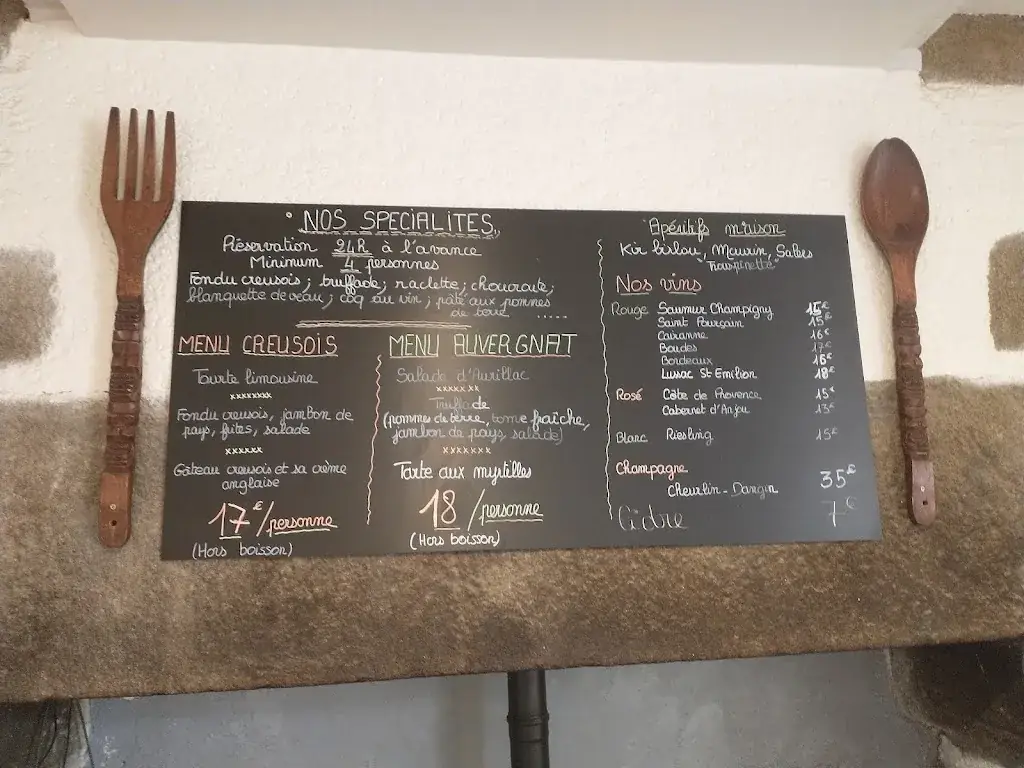 NOS SPECIALITES
Réservation 24h à l'avance
Minimum 4 personnes
Fondu creusois ; truffade ; raclette ; choucroute ;
blanquette de veau ; coq au vin ; pâté aux pommes
de terre .....
MENU CREUSOIS
Tourte limousine
xxxxxxxx
Fondu creusois, jambon de
pays, frites, salade
xxxxxx
Gateau creusois et sa crème
anglaise
17€/personne
(Hors boisson)
MENU AUVERGNAT
Salade d'Aurillac
xxxxx xx
Truffade
(pommes de terre, tome fraîche,
jambon de pays, salade)
xxxxxxx
Tarte aux myrtilles
18/personne
(Hors boisson)
Apéritifs maison
Kir bislou, Maurin, Salers
Nos vins
Rouge Saumur Champigny 15€
Saint Pourçain 15€
Cairanne 16€
Boudes 17€
Bordeaux 16€
Lussac St Emilion 18€
Rosé Côte de Provence 15€
Cabernet d'Anjou 13€
Blanc Riesling 15€
Champagne
Cheurlin-Dangin 35€
Cidre 7€